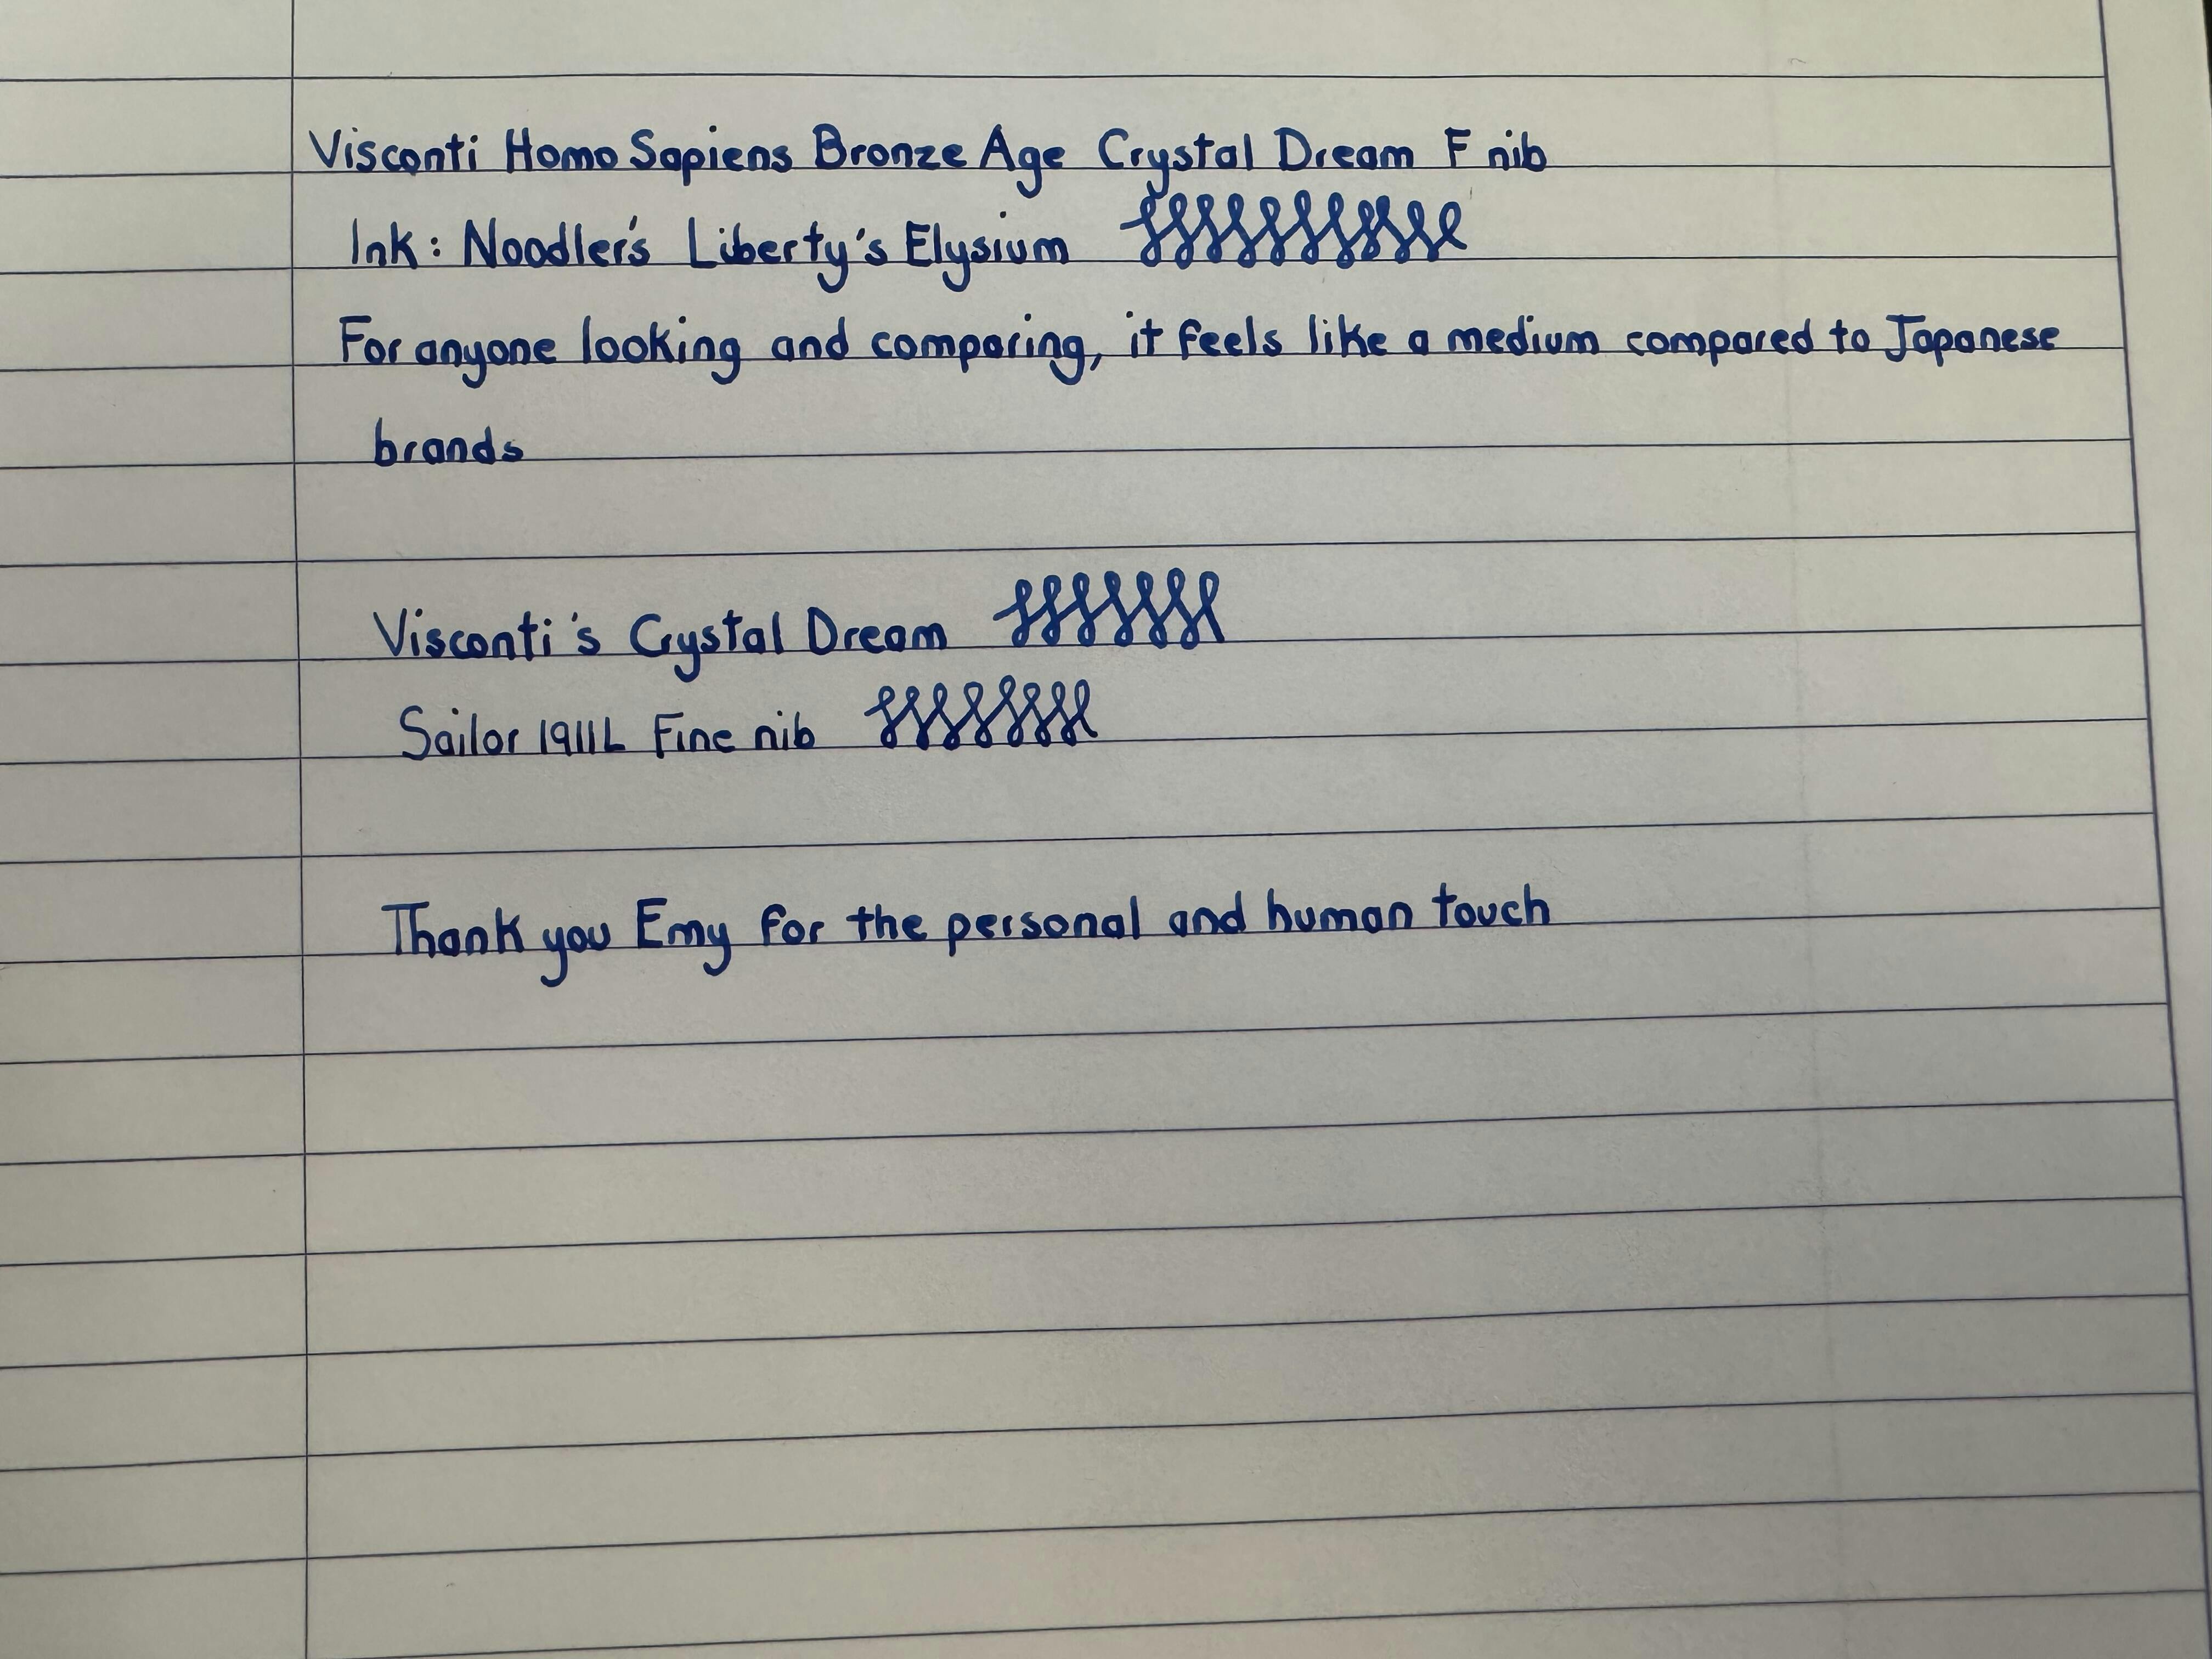 Visconti Homo Sapiens Bronze Age Crystal Dream F nib
Ink: Noodler's Liberty's Elysium
For anyone looking and comparing, it feels like a medium compared to Japanese
brands
Visconti's Crystal Dream
Sailor 1911L Fine nib
Thank you Emy for the personal and human touch